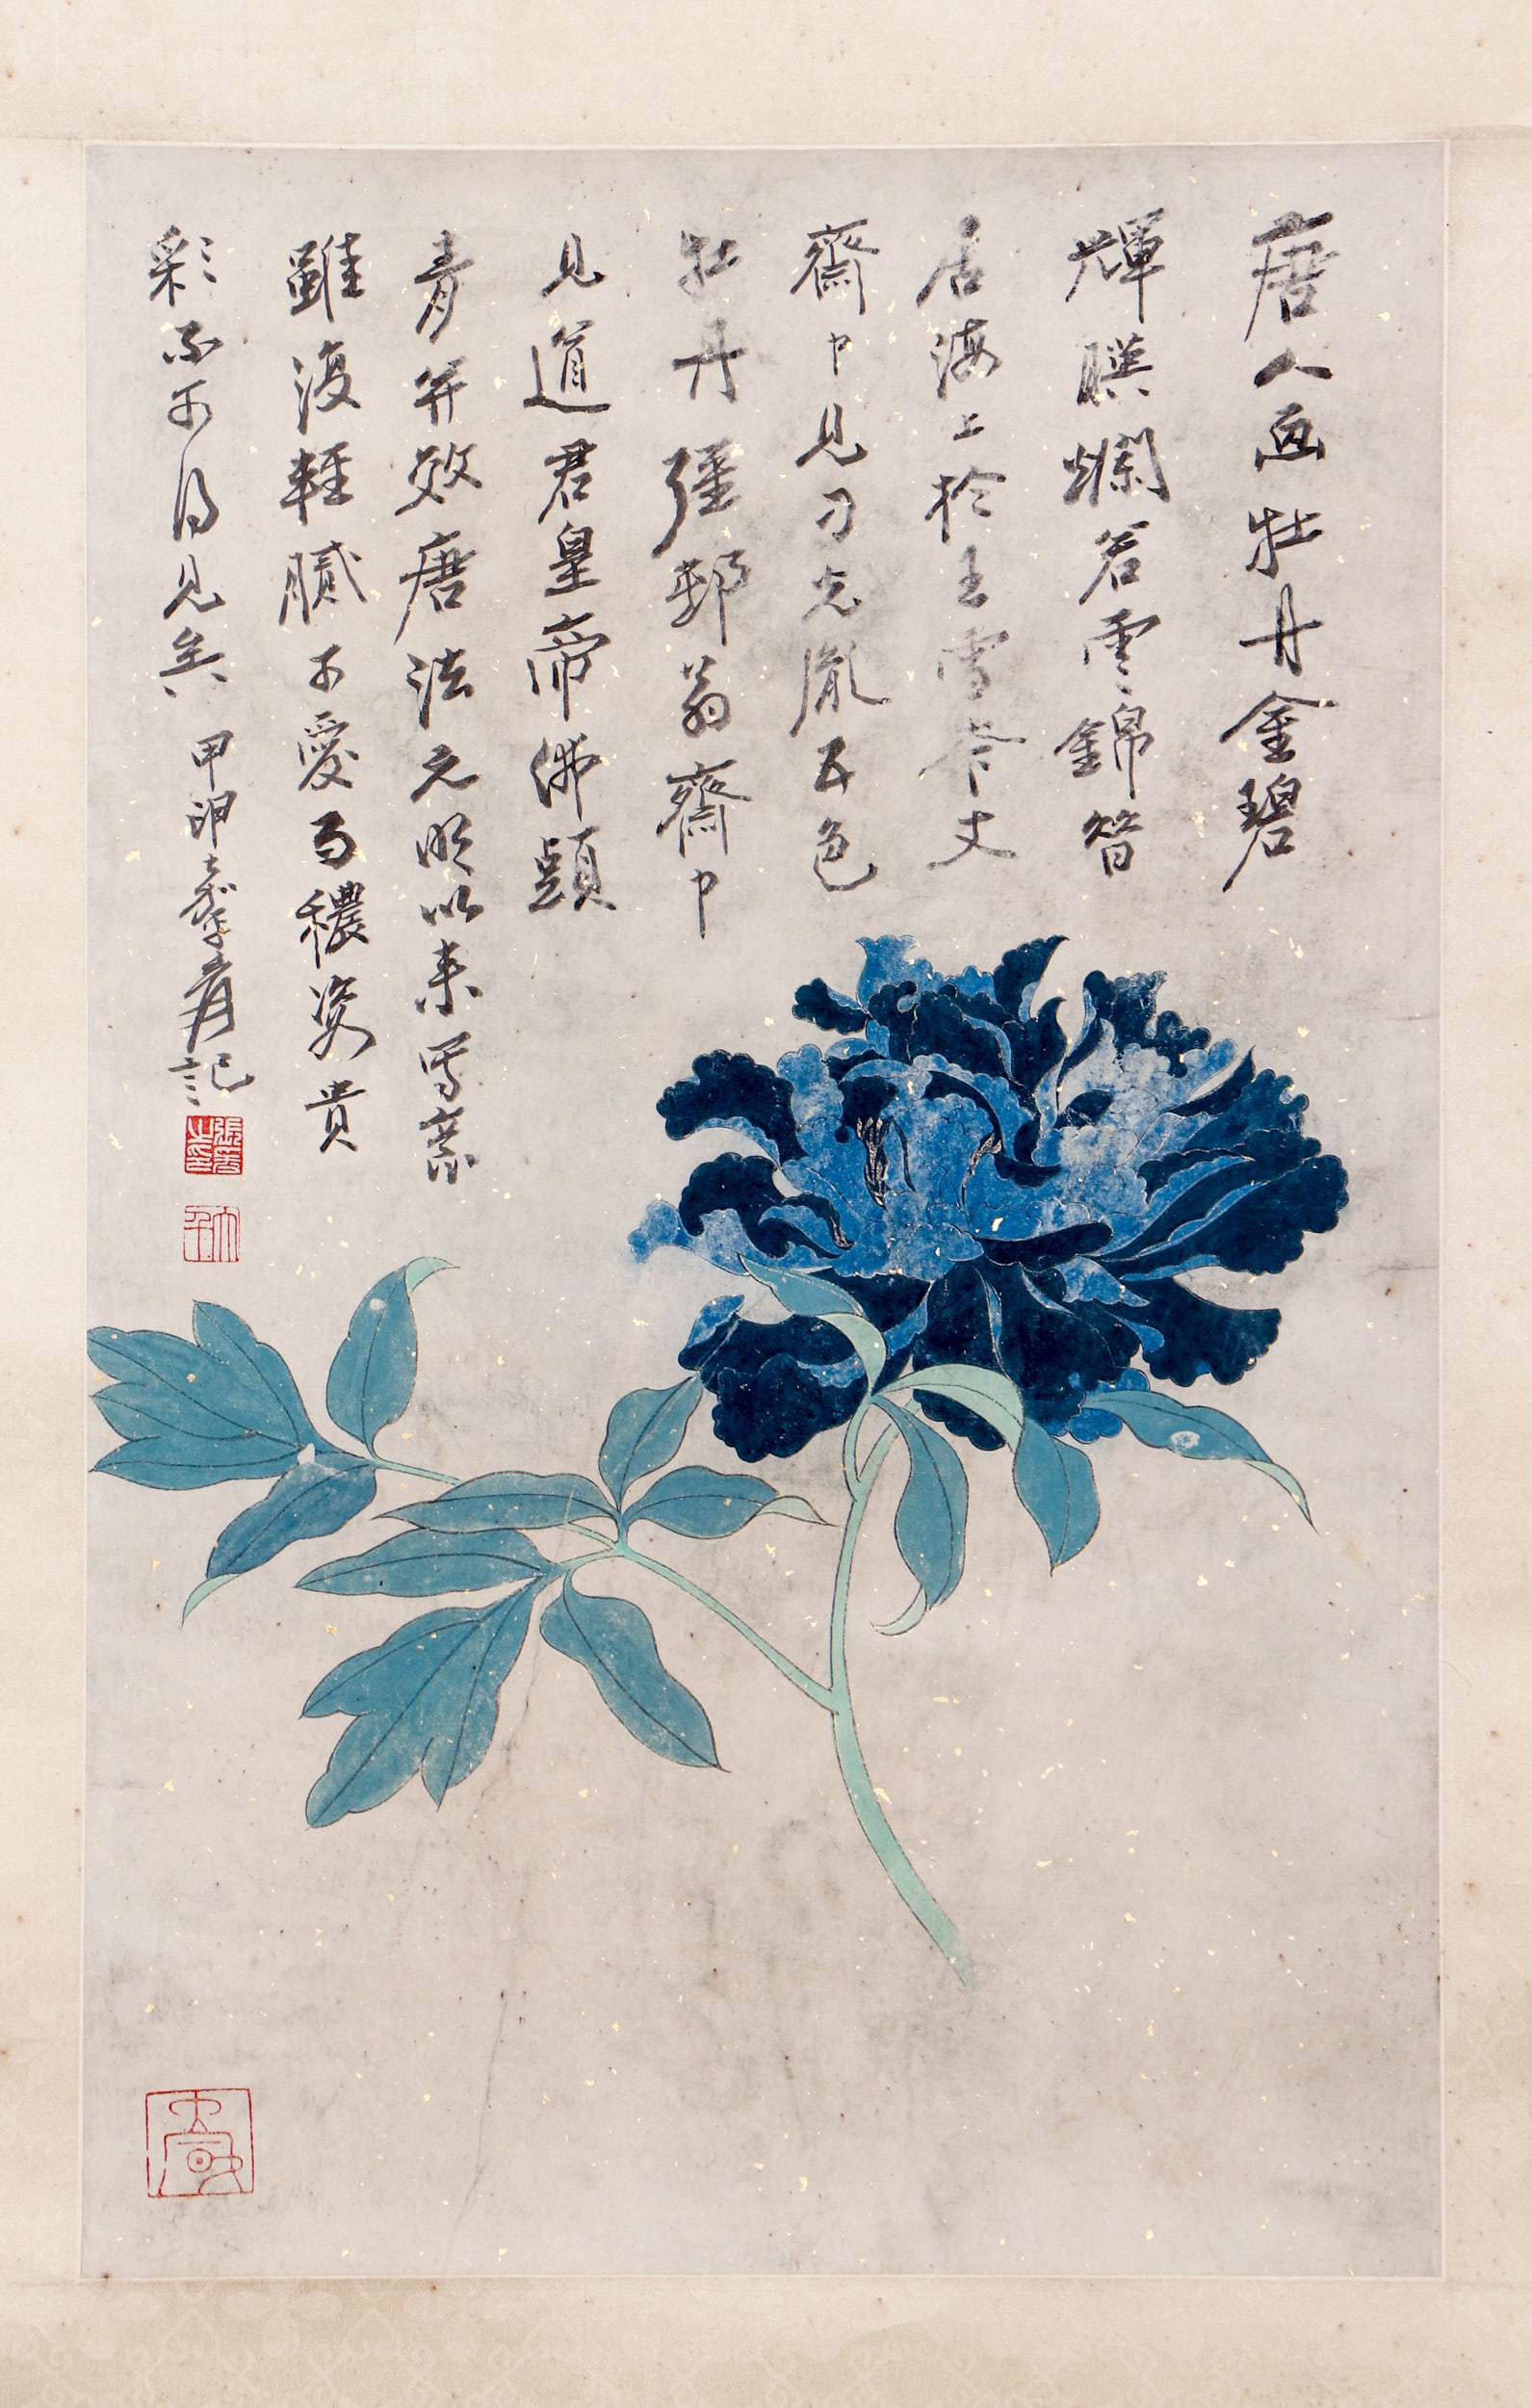 唐人画牡丹金碧
輝暎爛若雲錦昔
居海上於王雪岑丈
齋中見刁光胤五色
牡丹彊邨翁齋中
見道君皇帝佛頭
青并效唐法元明以来写意
雖復輕膩可愛而穠姿貴
彩不可得見矣 甲申爰記
張爰之印
大千